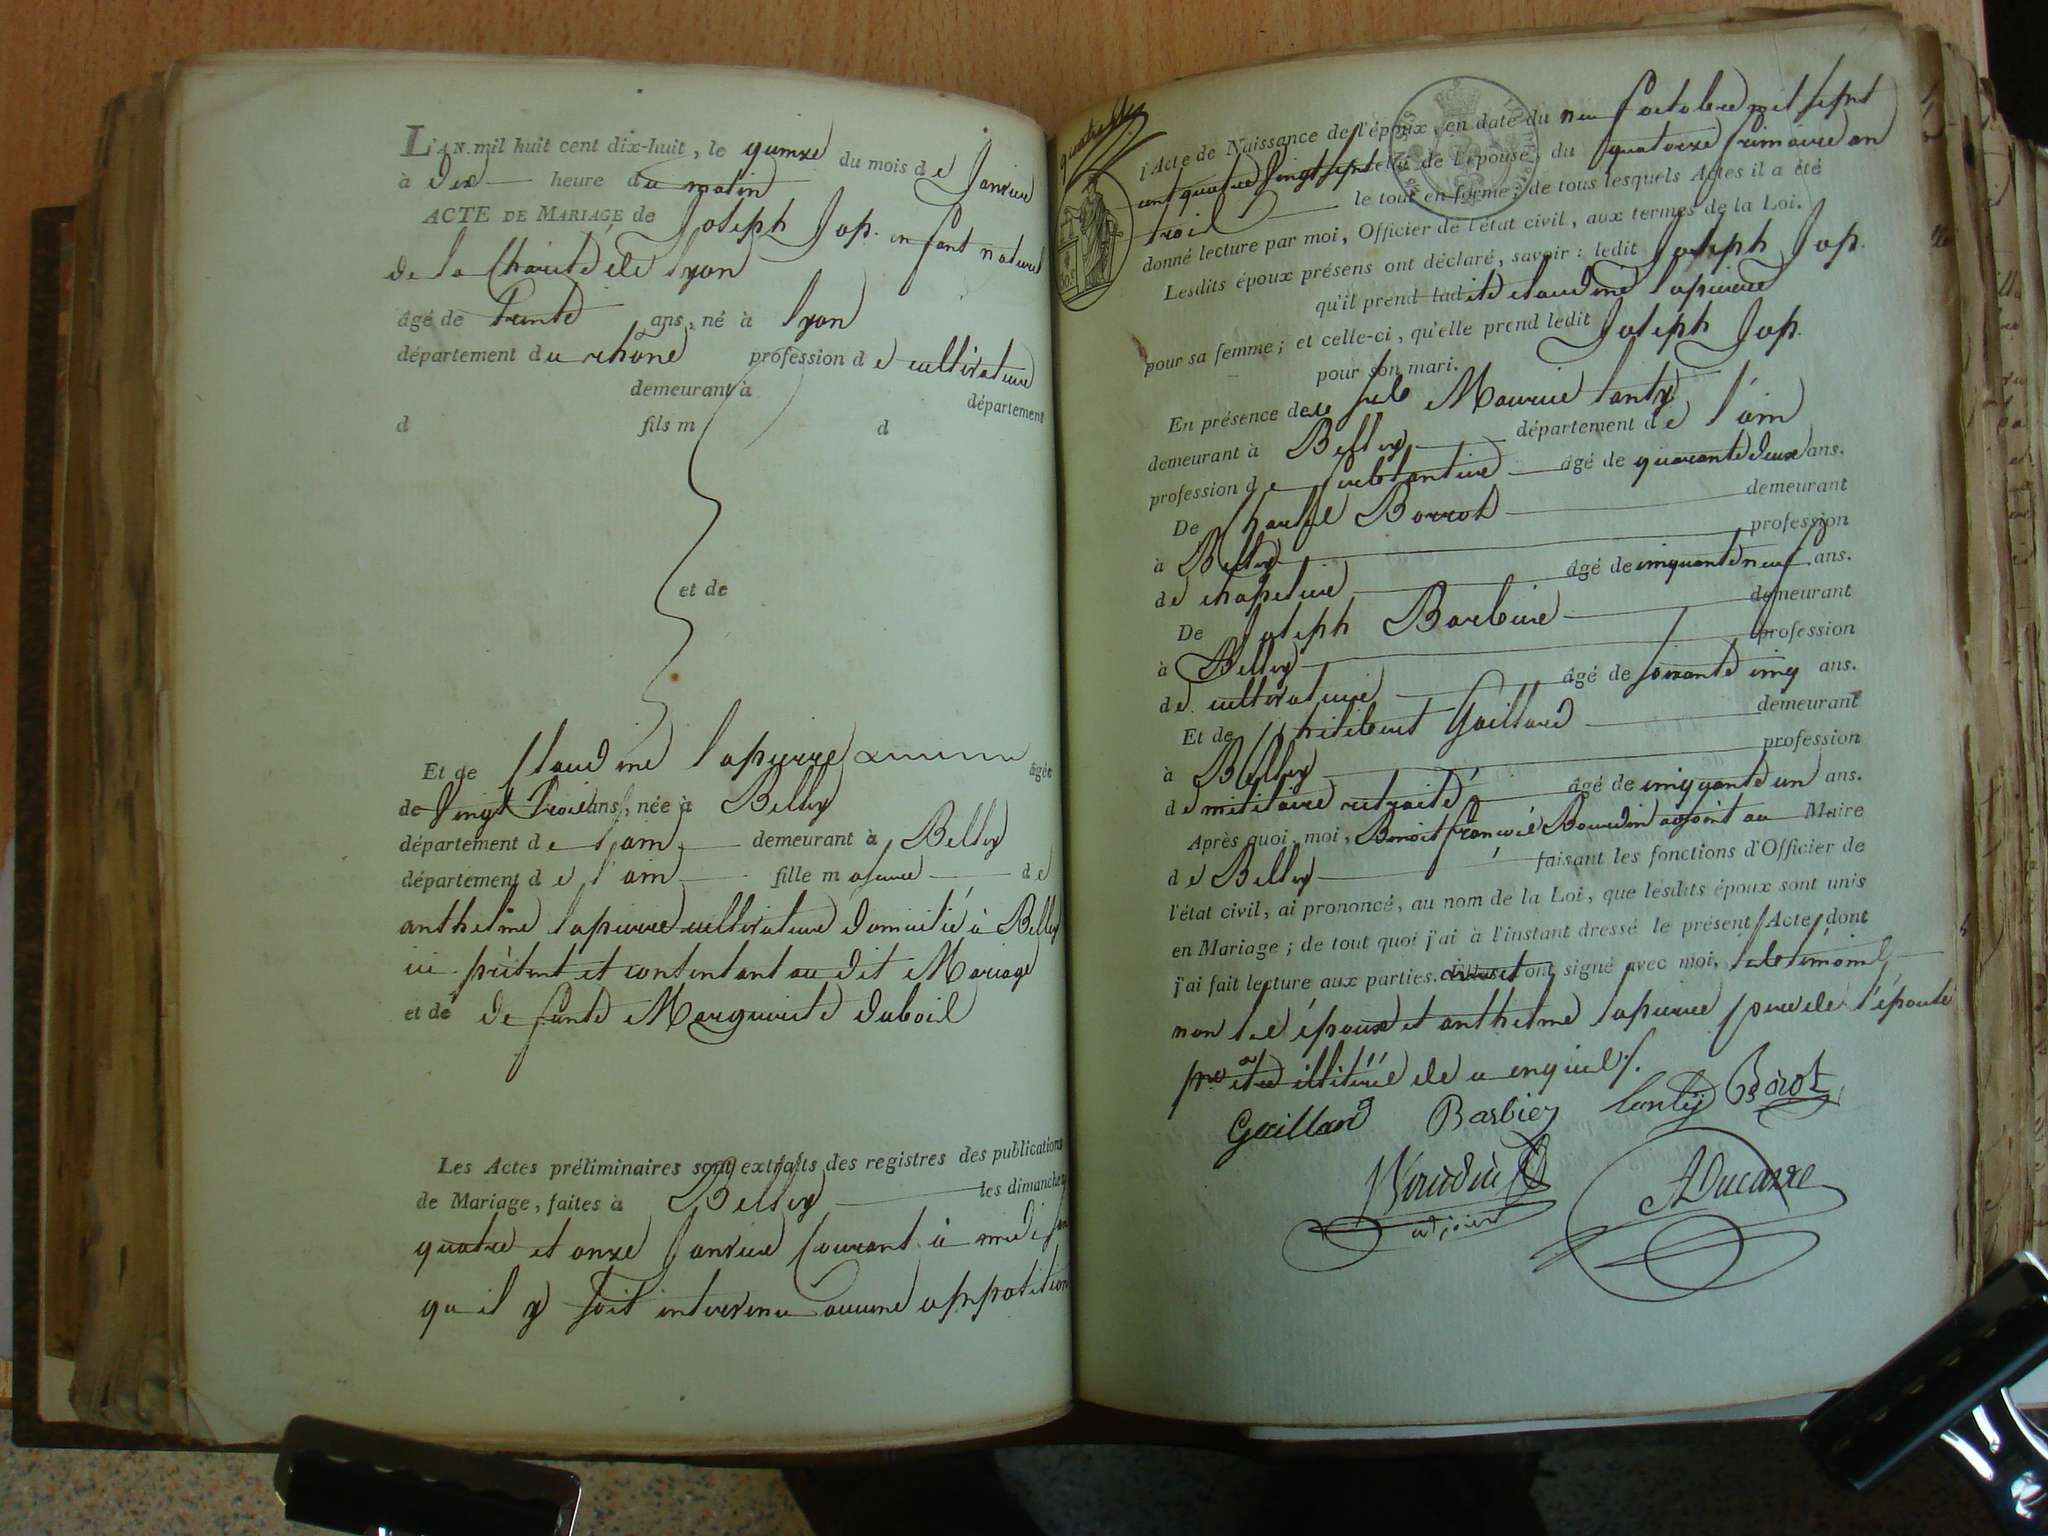 L'AN mil huit cent dix-huit, le quinze du mois de Janvier
à dix heure du matin
ACTE DE MARIAGE de Joseph Jop. enfant naturel
de la Charité de lyon
âgé de Trente ans, né à lyon
département du rhône profession de cultivateur
demeurant à département
d fils m d
et de
Et de Claudine lapierre âgée
de Vingt Trois ans, née à Belley
département de l'ain demeurant à Belley
département de l'ain fille majeure de
anthelme lapierre cultivateur domicilié à Belley
ici présent et consentant au dit Mariage
et de defunte Marguerite dubois
Les Actes préliminaires sont extraits des registres des publications
de Mariage, faites à Belley les dimanches
quatre et onze Janvier Courant à midi sans
qu il y soit intervenu aucune opposition
l'Acte de Naissance de l'époux, en date du neuf octobre mil sept
cent quatre vingt sept celle de l'épouse, du quatorze frimaire an
trois le tout en forme; de tous lesquels Actes il a été
donné lecture par moi, Officier de l'état civil, aux termes de la Loi.
Lesdits époux présens ont déclaré, savoir: ledit Joseph Jop.
qu'il prend ladite claudine lapierre
pour sa femme; et celle-ci, qu'elle prend ledit Joseph Jop.
pour son mari.
En présence de Maurice lanty
demeurant à Belley département de l'ain
profession de âgé de quarante deux ans.
De Borrot demeurant
à Belley profession
de chapelier âgé de cinquante neuf ans.
De Joseph Barbier demeurant
à Belley profession
de cultivateur âgé de soixante cinq ans.
Et de Gaillard demeurant
à Belley profession
de militaire retraité âgé de cinquante un ans.
Après quoi, moi, Benoit françois Boudin adjoint au Maire
de Belley faisant les fonctions d'Officier de
l'état civil, ai prononcé, au nom de la Loi, que lesdits époux sont unis
en Mariage; de tout quoi j'ai à l'instant dressé le présent Acte, dont
j'ai fait lecture aux parties. ont signé avec moi, les témoins
non les époux et anthelme lapierre pere de l'épouse
illitérés de ce enquis
Gaillard Barbier Lanty Borot
Boudin ADucarre
adjoint